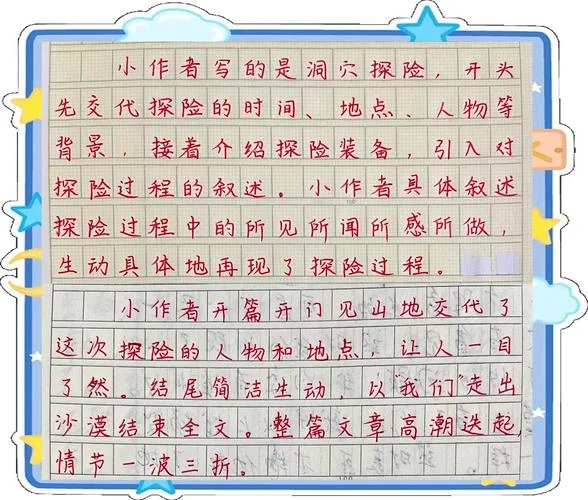 小作者写的是洞穴探险，开头
先交代探险的时间、地点、人物等
背景，接着介绍探险装备，引入对
探险过程的叙述。小作者具体叙述
探险过程中的所见所闻所感所做，
生动具体地再现了探险过程。
小作者开篇开门见山地交代了
这次探险的人物和地点，让人一目
了然。结尾简洁生动，以“我们”走出
沙漠结束全文。整篇文章高潮迭起，
情节一波三折。